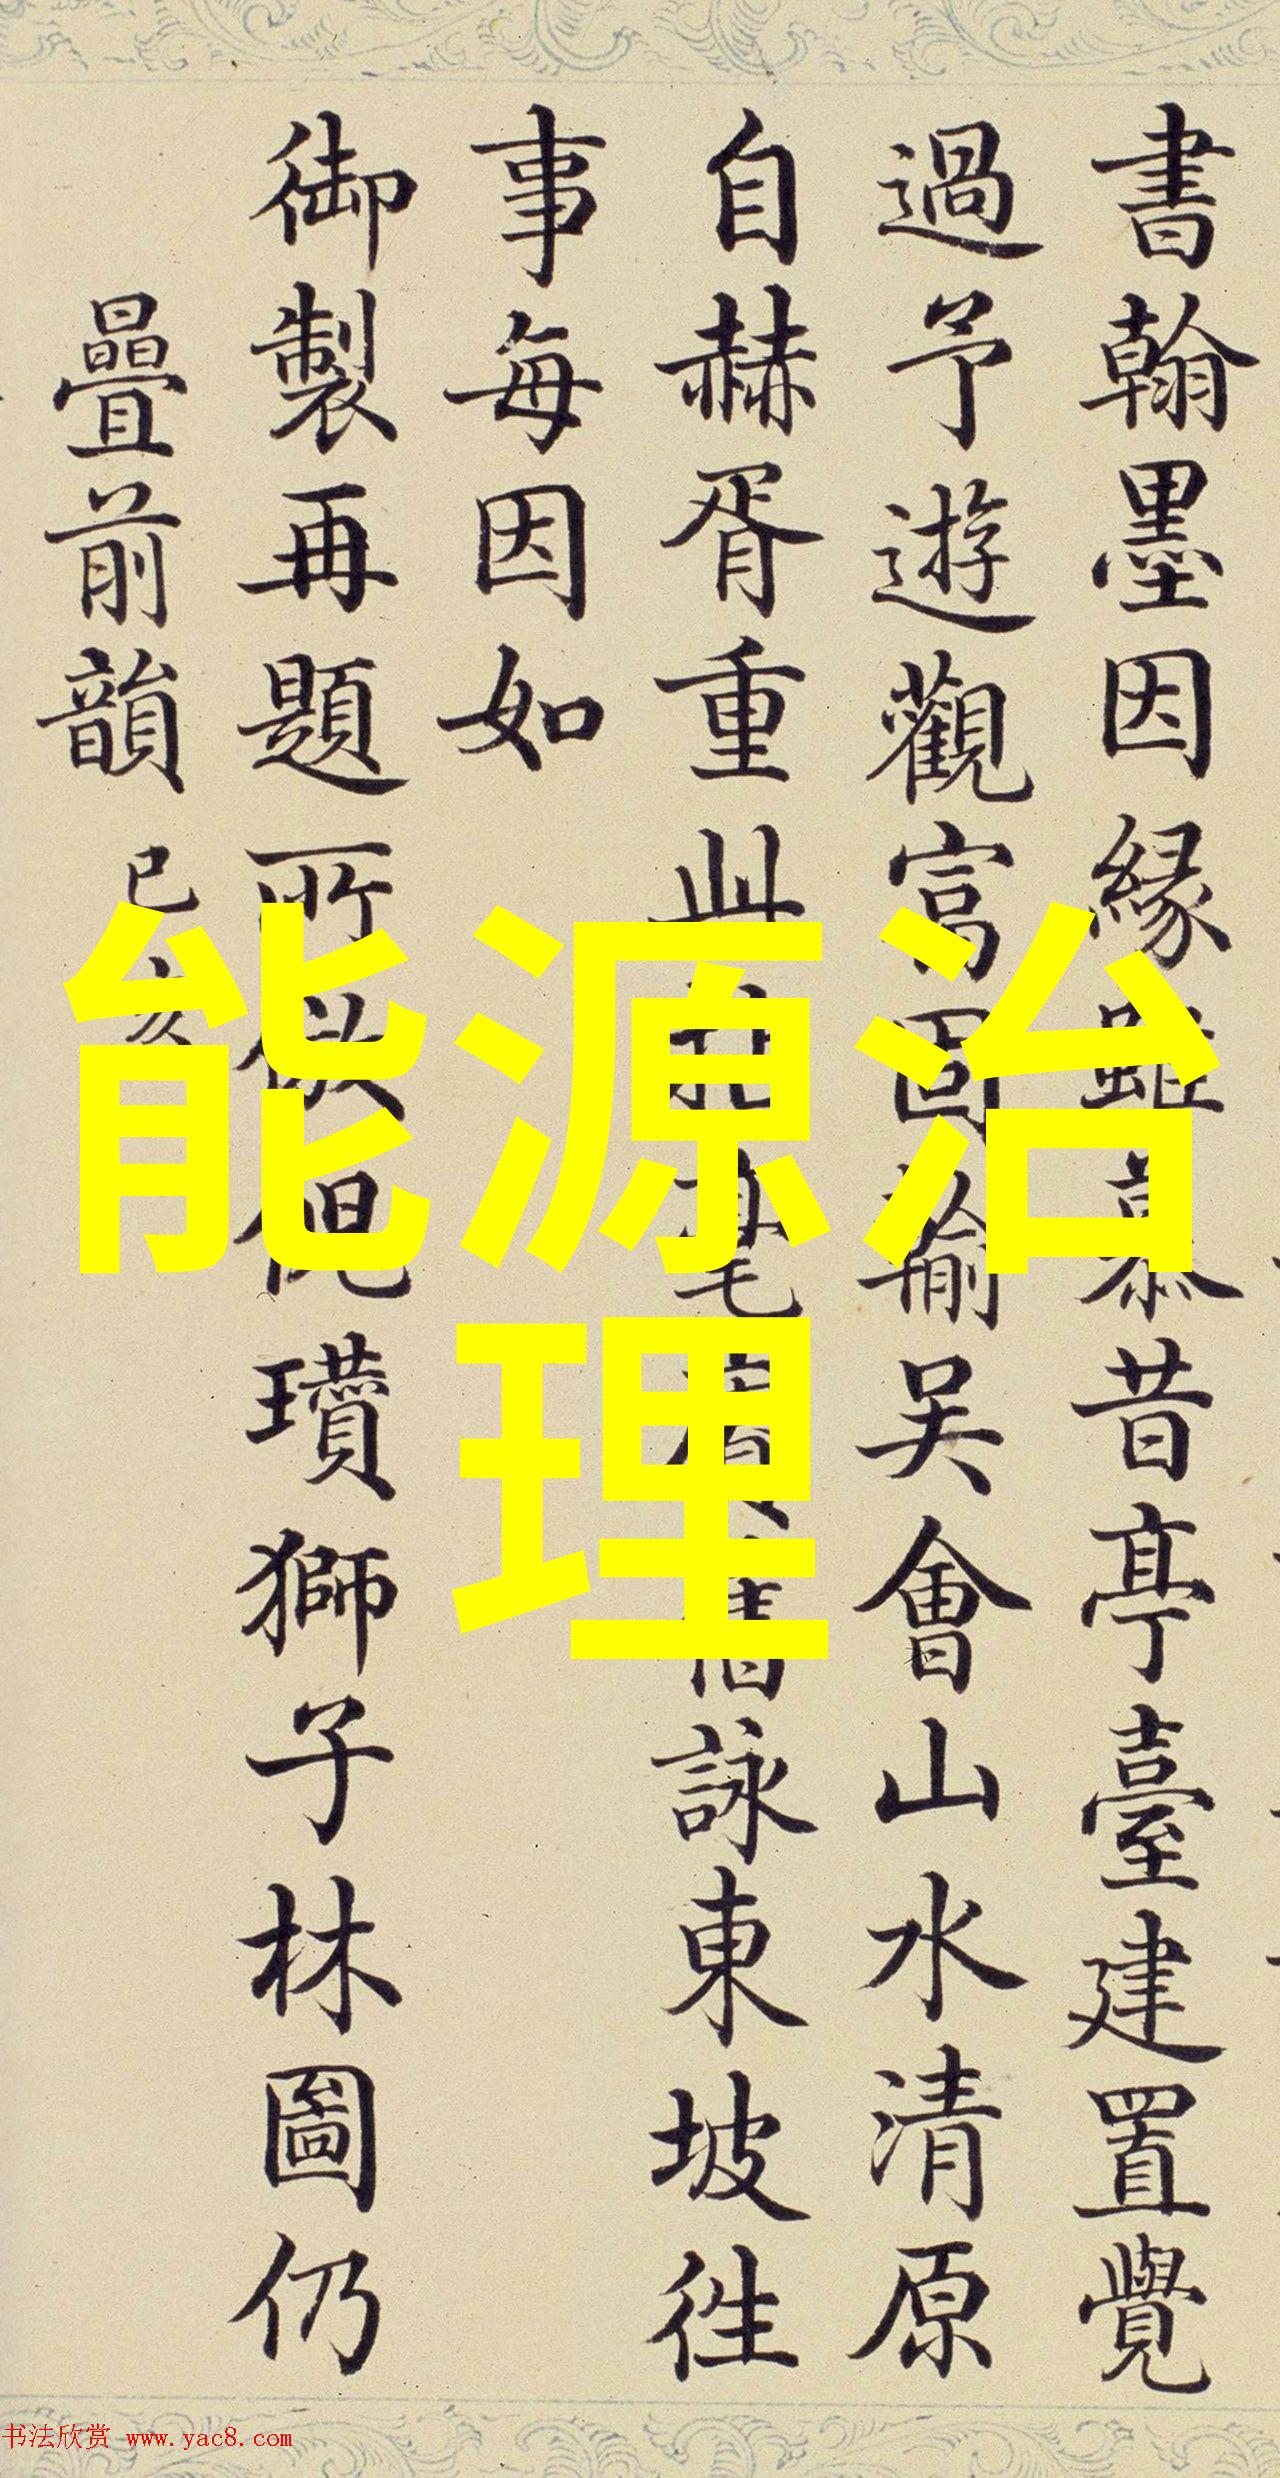 書翰墨因緣雖慕昔亭臺建置覺
過予遊觀富固輸吴會山水清原
自赫胥重此詠東坡徃
事每因如
御製再題所倪瓚獅子林圖仍
疊前韻 已亥
能源治
理
书法欣赏 www.yac8.com